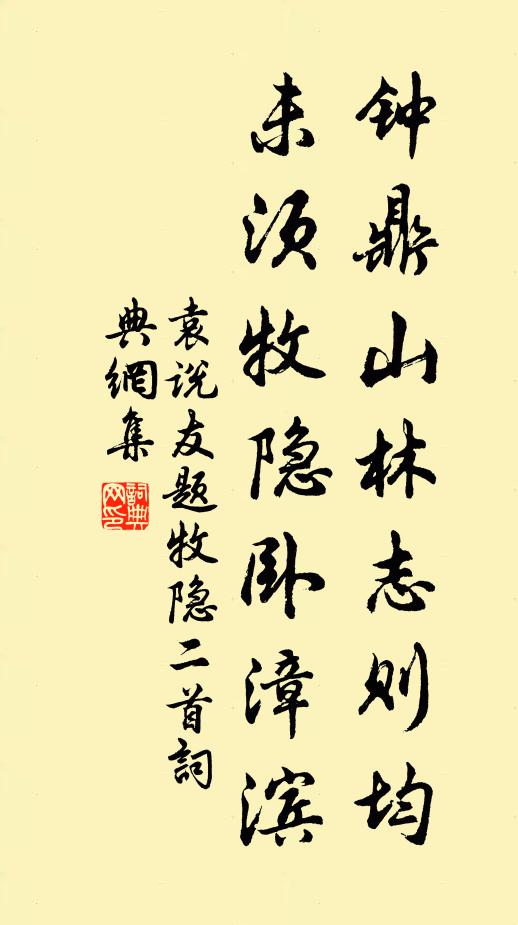 钟鼎山林志则均
未须牧隐卧漳滨
袁说友题牧隐二首詞
典網集
詞典
网印